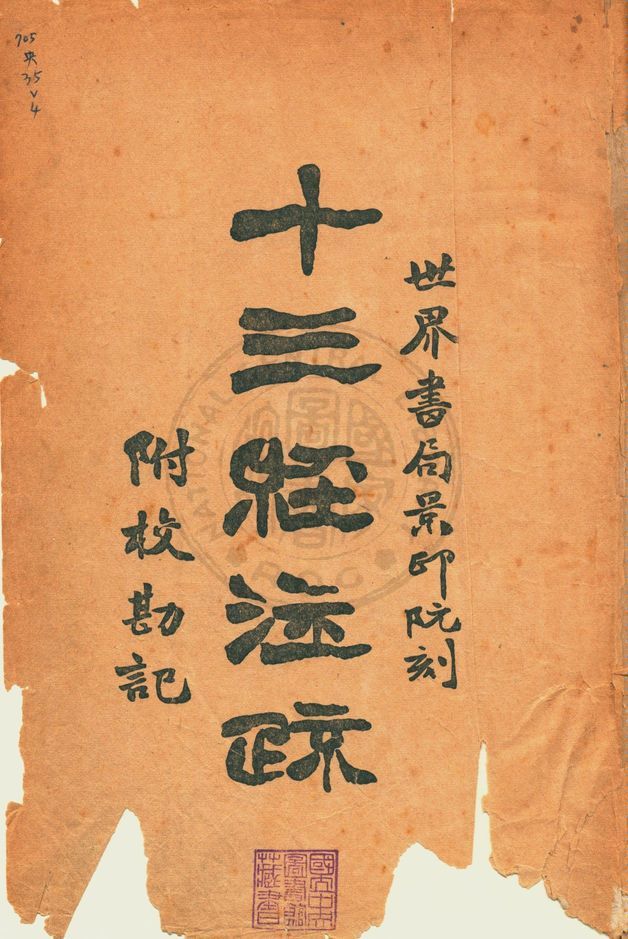 世界書局景印阮刻
十三經注疏
附校勘記
705
央
35
v
4
NATIONAL
R.O.C
國立中央
圖書館
藏書